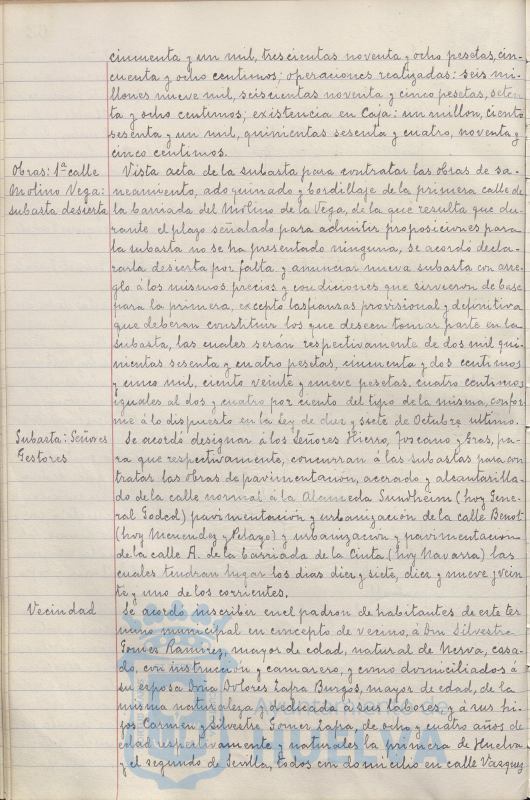 cincuenta y un mil, trescientas noventa y ocho pesetas, cin-
cuenta y ocho centimos; operaciones realizadas: seis mi-
llones nueve mil, seiscientas noventa y cinco pesetas, seten
ta y ocho centimos; existencia en Caja: un millon, ciento
sesenta y un mil, quinientas sesenta y cuatro, noventa y
cinco centimos.
Obras: 1ª calle
Molino Vega:
subasta desierta
Vista acta de la subasta para contratar las obras de sa-
neamiento, adoquinado y bordillaje de la primera calle de
la barriada del Molino de la Vega, de la que resulta que du-
rante el plazo señalado para admitir proposiciones para
la subasta no se ha presentado ninguna, se acordó decla-
rarla desierta por falta y anunciar nueva subasta con arre-
glo á los mismos precios y condiciones que sirvieron de base
para la primera, excepto las fianzas provisional y definitiva
que deberan constituir los que deseen tomar parte en la
subasta, las cuales serán respectivamente de dos mil qui-
nientas sesenta y cuatro pesetas, cincuenta y dos centimos
y cinco mil, ciento veinte y nueve pesetas, cuatro centimos
iguales al dos y cuatro por ciento del tipo de la misma, confor
me á lo dispuesto en la ley de diez y siete de Octubre ultimo.
Subasta: Señores
Gestores
Se acordó designar á los Señores Hierro, Toscano y Gras, pa-
ra que respectivamente, concurran á las subastas para con
tratar las obras de pavimentación, acerado y alcantarilla-
do de la calle normal á la Alameda Sundheim (hoy Gene-
ral Goded) pavimentación y urbanización de la calle Benot
(hoy Menendez y Pelayo) y urbanización y pavimentacion
de la calle A. de la barriada de la Cinta (hoy Navarra) las
cuales tendran lugar los dias diez y siete, diez y nueve y vein
te y uno de los corrientes.
Vecindad
Se acordó inscribir en el padron de habitantes de este ter
mino municipal en concepto de vecino, á Don Silvestre
Gomez Ramirez, mayor de edad, natural de Nerva, casa-
do, con instrucción y camarero, y como domiciliados á
su esposa Doña Dolores Zapra Burgos, mayor de edad, de la
misma naturaleza y dedicada á sus labores, y á sus hi-
jos Carmen y Silvestre Gomez Zapra, de ocho y cuatro años de
edad respectivamente y naturales la primera de Huelva
y el segundo de Sevilla, todos con domicilio en calle Vazquez